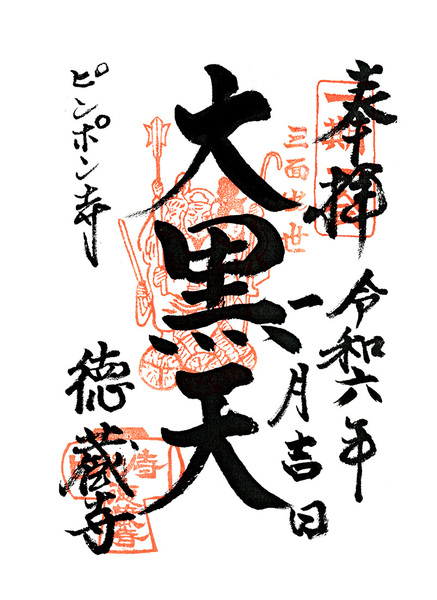 奉拝
令和六年
一月吉日
大黒天
三面出世
ピンポン寺
徳蔵寺